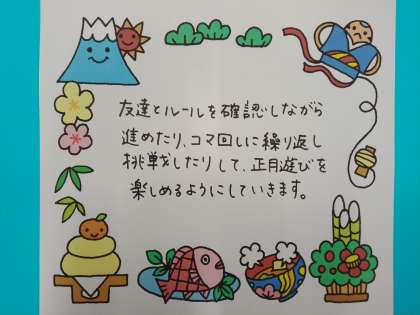 友達とルールを確認しながら
進めたり、コマ回しに繰り返し
挑戦したりして、正月遊びを
楽しめるようにしていきます。